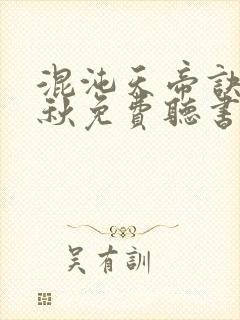 混沌天帝訣
秋免費聽書
吳有訓